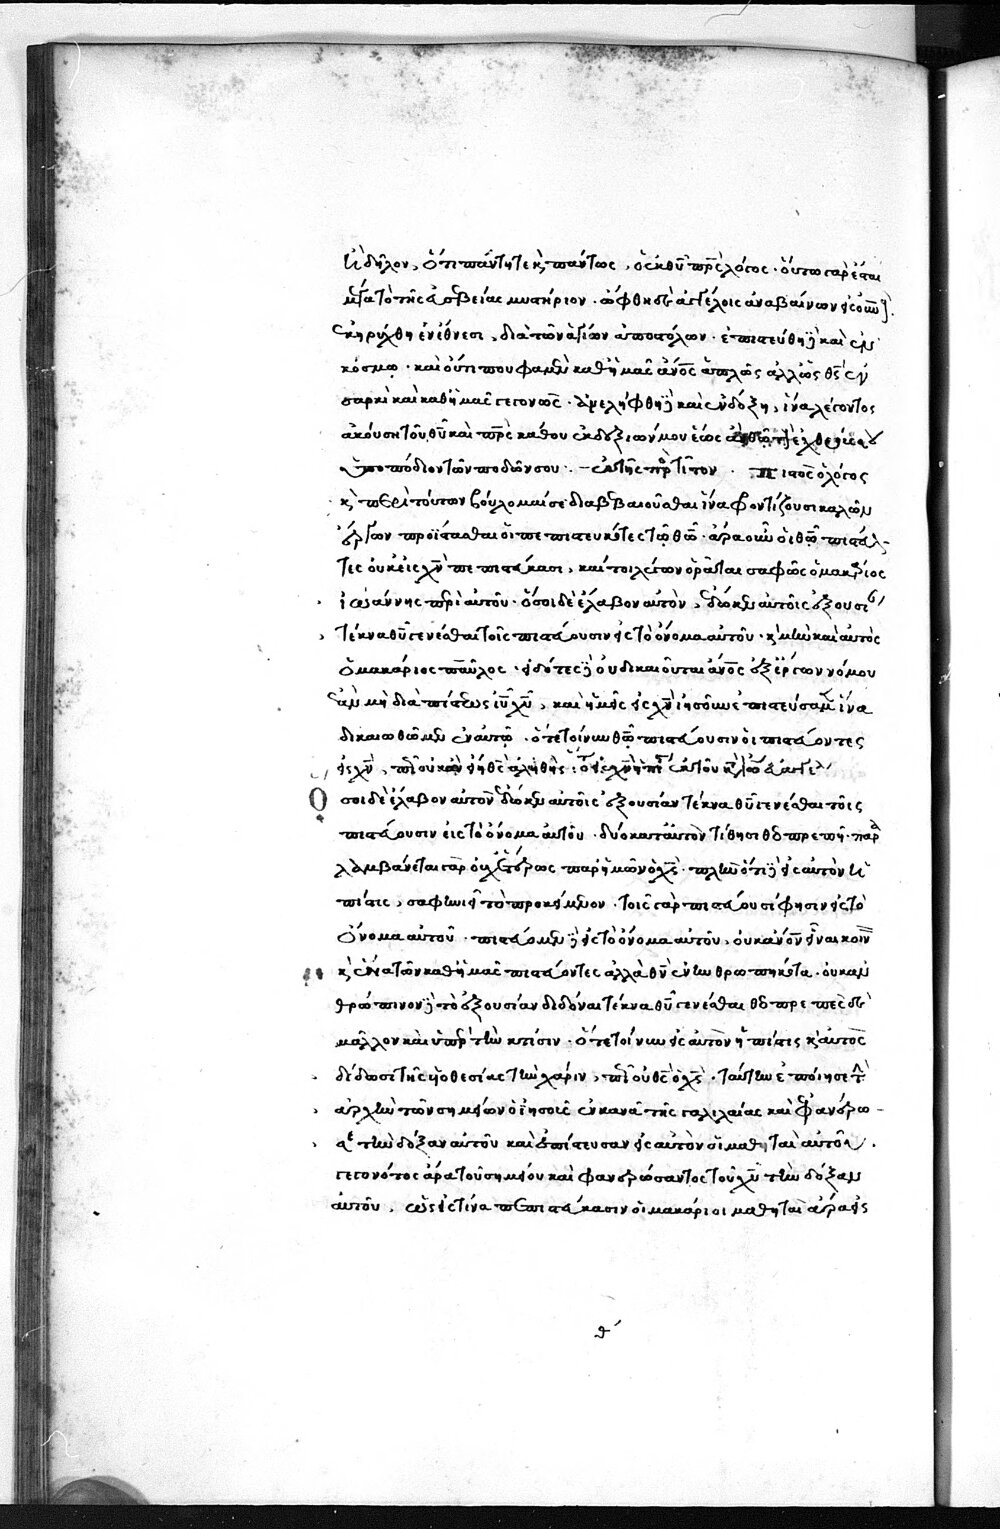 δῆλον, ὅτι πάντῃ τε κ πάντως, ὁ ἐκ θῦ πρς λόγος. οὕτω γὰρ ἔσται
μέγα τὸ τῆς εὐσεβείας μυστήριον. ὤφθη δὲ ἀγγέλοις ἀναβαίνων
ἐκηρύχθη ἐν ἔθνεσι, διὰ τῶν ἁγίων ἀποστόλων. ἐπιστεύθη καὶ ἐν
κόσμω. καὶ οὔτι που φαμὲν καθ ἡμᾶς ἄνος ἁπλῶς ἀλλ ὡς θς ἐν
σαρκὶ καὶ καθ ἡμᾶς γεγονώς. ἀνελήφθη καὶ ἐν δόξη, ἵνα λέγοντος
ἀκούση τοῦ θῦ καὶ πρς κάθου ἐκ δεξιῶν μου ἕως
ὑποπόδιον τῶν ποδῶν σου. πιστὸς ὁ λόγος
κ περὶ τούτων βούλομαί σε διαβεβαιοῦσθαι ἵνα φροντίζουσι καλῶν
ἔργων προΐστασθαι οἱ πεπιστευκότες τῷ θῶ. ἆρα οὖν οἱ θῶ πιστεύσαν
τες οὐκ εἰς χν πεπιστεύκασι, καί τοι λέγων ὁρᾶται σαφῶς ὁ μακάριος
ἰωάννης περὶ αὐτοῦ. ὅσοι δὲ ἔλαβον αὐτὸν, ἔδωκεν αὐτοῖς ἐξουσί
τέκνα θῦ γενέσθαι τοῖς πιστεύουσιν εἰς τὸ ὄνομα αὐτοῦ. κ μὴν καὶ αὐτὸς
ὁ μακάριος παῦλος. εἰδότες οὐ δικαιοῦται ἄνος ἐξ ἔργων νόμου
ἐὰν μὴ διὰ πίστεως ἰῦ χῦ, καὶ ἡμεῖς εἰς χν ἰησοῦν ἐπιστεύσαμεν ἵνα
δικαιωθῶμεν ἐν αὐτῷ. ὅτε τοίνυν θῶ πιστεύουσιν οἱ πιστεύοντες
εἰς χν, πῶς οὐκ ἂν εἴη θς ἀληθὴς
Ο σοι δὲ ἔλαβον αὐτὸν ἔδωκεν αὐτοῖς ἐξουσίαν τέκνα θῦ γενέσθαι τοῖς
πιστεύουσιν εἰς τὸ ὄνομα αὐτοῦ. δύο κατ αὐτὸν τίθησι θεοπρεπῆ. παρα
λαμβάνεται γὰρ οὐχ ἑτέρως παρ ἡμῶν ὁ χς. πλὴν ὅτι εἰς αὐτὸν ἡ
πίστις, σαφηνιεῖ τὸ προκείμενον. τοῖς γὰρ πιστεύουσί φησιν εἰς τὸ
ὄνομα αὐτοῦ. πιστεύομεν εἰς τὸ ὄνομα αὐτοῦ, οὐκ ἄνον εἶναι κοινὸν
κ ἕνα τῶν καθ ἡμᾶς πιστεύοντες ἀλλὰ θν ἐνηνθρωπηκότα. οὐκ ἀν
θρώπινον τὸ ἐξουσίαν διδόναι τέκνα θῦ γενέσθαι θεοπρεπὲς δὲ
μᾶλλον καὶ ὑπὲρ τὴν κτίσιν. ὅτε τοίνυν εἰς αὐτὸν ἡ πίστις κ αὐτὸς
δίδωσι τῆς υἱοθεσίας τὴν χάριν, πῶς οὐ θς ὁ χς. ταύτην ἐποίησε τὴν
ἀρχὴν τῶν σημείων ὁ ἰησοῦς ἐν κανᾶ τῆς γαλιλαίας καὶ ἐφανέρω
σε τὴν δόξαν αὐτοῦ καὶ ἐπίστευσαν εἰς αὐτὸν οἱ μαθηταὶ αὐτοῦ.
γεγονότος ἄρα τοῦ σημείου καὶ φανερώσαντος τοῦ χῦ τὴν δόξαν
αὐτοῦ, ὡς εἰς τίνα πεπιστεύκασιν οἱ μακάριοι μαθηταὶ ἆρα εἰς
θ´